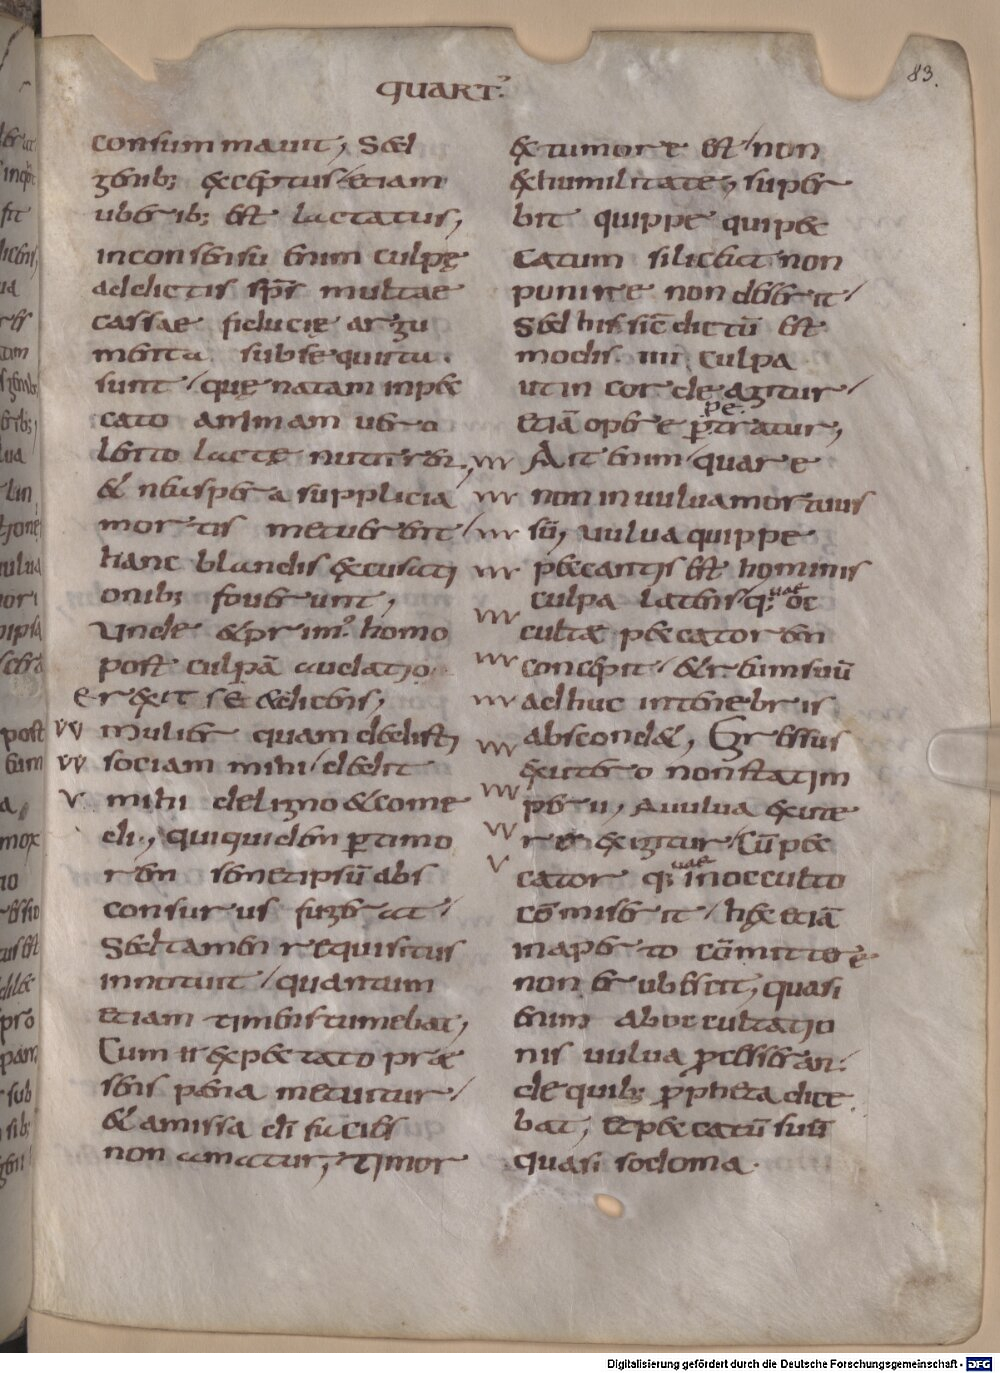 QUART'
83.
consummauit, Sed
genib; exceptus / etiam
uberib; est lactatus,
inconsensu enim culpę
addictis sp̄s multae
cassae fiducię argu
menta subsequuta
sunt / quę natam inpec
cato animam uero
lento lacte nutrirent,
& ne aspera supplicia
mortis metuerent /
hanc blandis excusati
onib; fouerunt,
Unde & prim' homo
post culpā uelatio
r exit se & dicens,
mulier quam dedisti
sociam mihi / dedit
mihi de ligno & come
di, qui quidem p timo
rem semetipsū abs
consurus fugerat /
Sed tamen requisitus
innotuit / quantum
etiam timens tumebat,
Cum u expectato præ
sens pœna metuitur /
& amissa di facies
non amatur, timor
ex tumore est / non
ex humilitate, super
bit quippe qui pec
catum si liceat non
punire non deserit /
Sed his sic dictū est
modis IIII culpa
ut in corde agitur /
pe
etiā opere ptratur,
Ait enim / quare
non in uulua mortuus
sū, uulua quippe
peccantis est hominis
uae
culpa latens / q; oc
culte peccatorem
concepit / & reum suū
adhuc in tenebris
abscond&, Egressus
ex utero non statim
perii, A uulua exire
re exigitur / Cū pec
uae
cator q; in occulto
cōmiserit / hęc etiā
in aperto cōmittere
non erubescit, quasi
enim ab occultatio
nis uulua pcesserant
de quib; ppheta dice
bat, et peccatū suū
quasi sodoma.
Digitalisierung gefördert durch die Deutsche Forschungsgemeinschaft - DFG